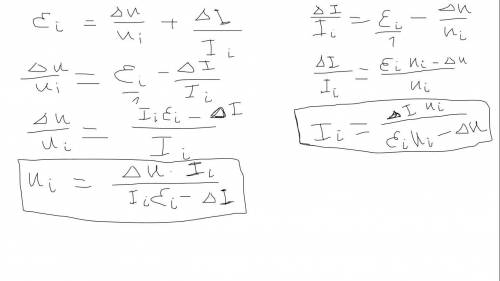 εᵢ = Δu/uᵢ + ΔI/Iᵢ
Δu/uᵢ = εᵢ/1 − ΔI/Iᵢ
Δu/uᵢ = (Iᵢεᵢ − ΔI)/Iᵢ
uᵢ = (Δu · Iᵢ)/(Iᵢεᵢ − ΔI)
ΔI/Iᵢ = εᵢ/1 − Δu/uᵢ
ΔI/Iᵢ = (εᵢuᵢ − Δu)/uᵢ
Iᵢ = (ΔI uᵢ)/(εᵢuᵢ − Δu)